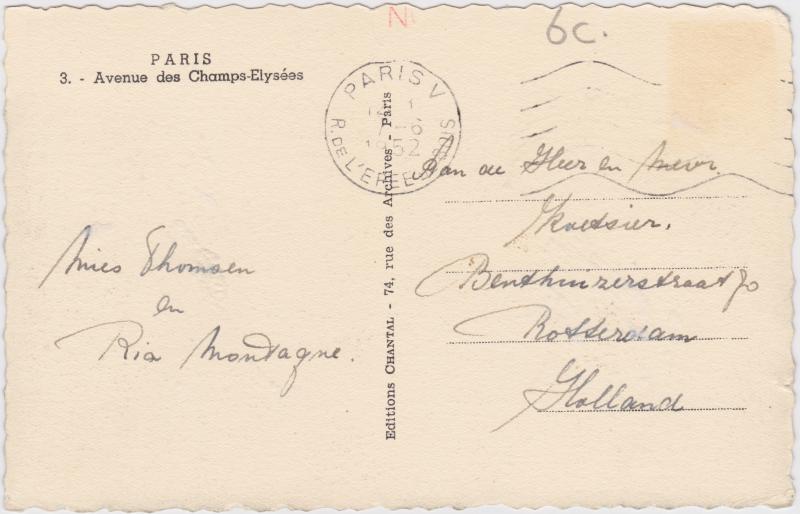 PARIS
3. - Avenue des Champs-Elysées
6c.
PARIS V
R. DE L'EPEE
1952
Editions CHANTAL - 74, rue des Archives - Paris
Aan de Heer en Mevr.
Koetsier.
Benthuizerstraat 70
Rotterdam
Holland
Mies Thomsen
en
Ria Montagne.